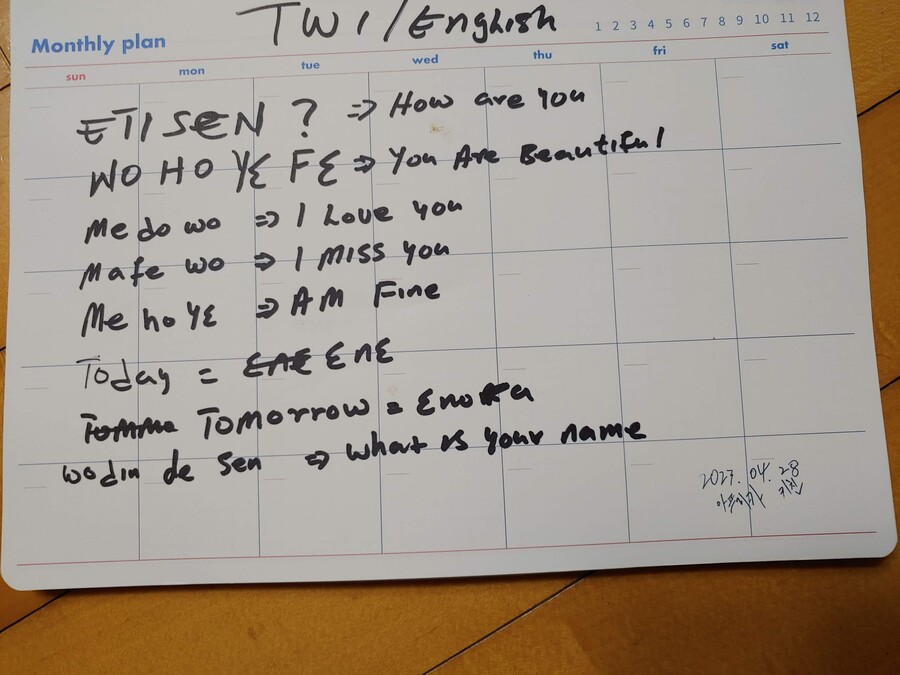 TWI/English
Monthly plan
1 2 3 4 5 6 7 8 9 10 11 12
sun mon tue wed thu fri sat
ETI SEN ? ⇒ How are you
WO HO YƐ FƐ ⇒ You Are Beautiful
Me do wo ⇒ I Love you
Mafe wo ⇒ I MISS you
Me ho YƐ ⇒ AM Fine
Today = ƐnƐ
Tomorrow = Ɛnoka
wodin de Sen ⇒ what is your name
04. 28